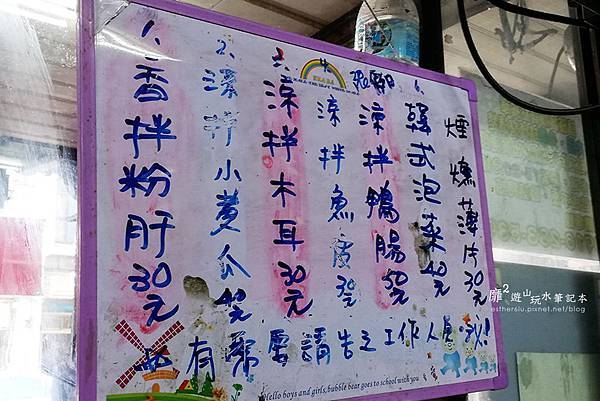 1. 香拌粉肝30元
2. 涼拌小黃瓜
3. 涼拌木耳30元
4. 涼拌魚皮30元
涼拌鴨腸50元
6. 韓式泡菜40元
煙燻薄片30元
有需要請告之工作人員
Hello boys and girls, bubble bear goes to school with you
靡²遊山玩水筆記本
estherslu.pixnet.net/blog